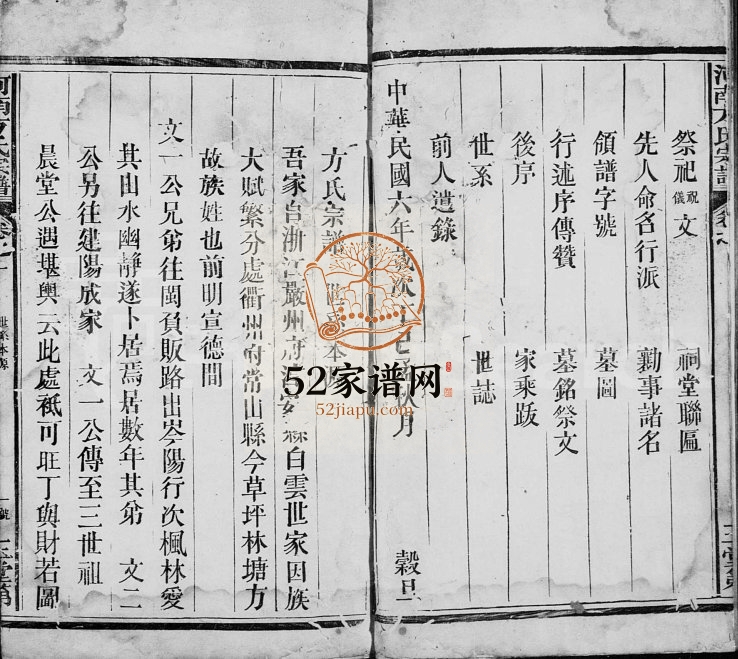 祭祀祝儀文 祠堂聯匾
先人命名行派 勷事諸名
領譜字號 墓圖
行述序傳贊 墓銘祭文
後序 家乘跋
世系 世誌
前人遺錄
中華民國六年歲次丁巳 月 穀旦
方氏宗譜 世系本
吾家自浙江嚴州府 安縣白雲世家因族
大賦繁分處衢州府常山縣今草坪林塘方
故族姓也前明宣德間
文一公兄弟往閩負販路出岑陽行次楓林愛
其山水幽靜遂卜居焉居數年其弟 文二
公另往建陽成家 文一公傳至三世祖
晨堂公遇堪輿云此處衹可旺丁與財若圖
河南方氏宗譜
世系本源
河南方氏宗譜
52家谱网
52jiapu.com